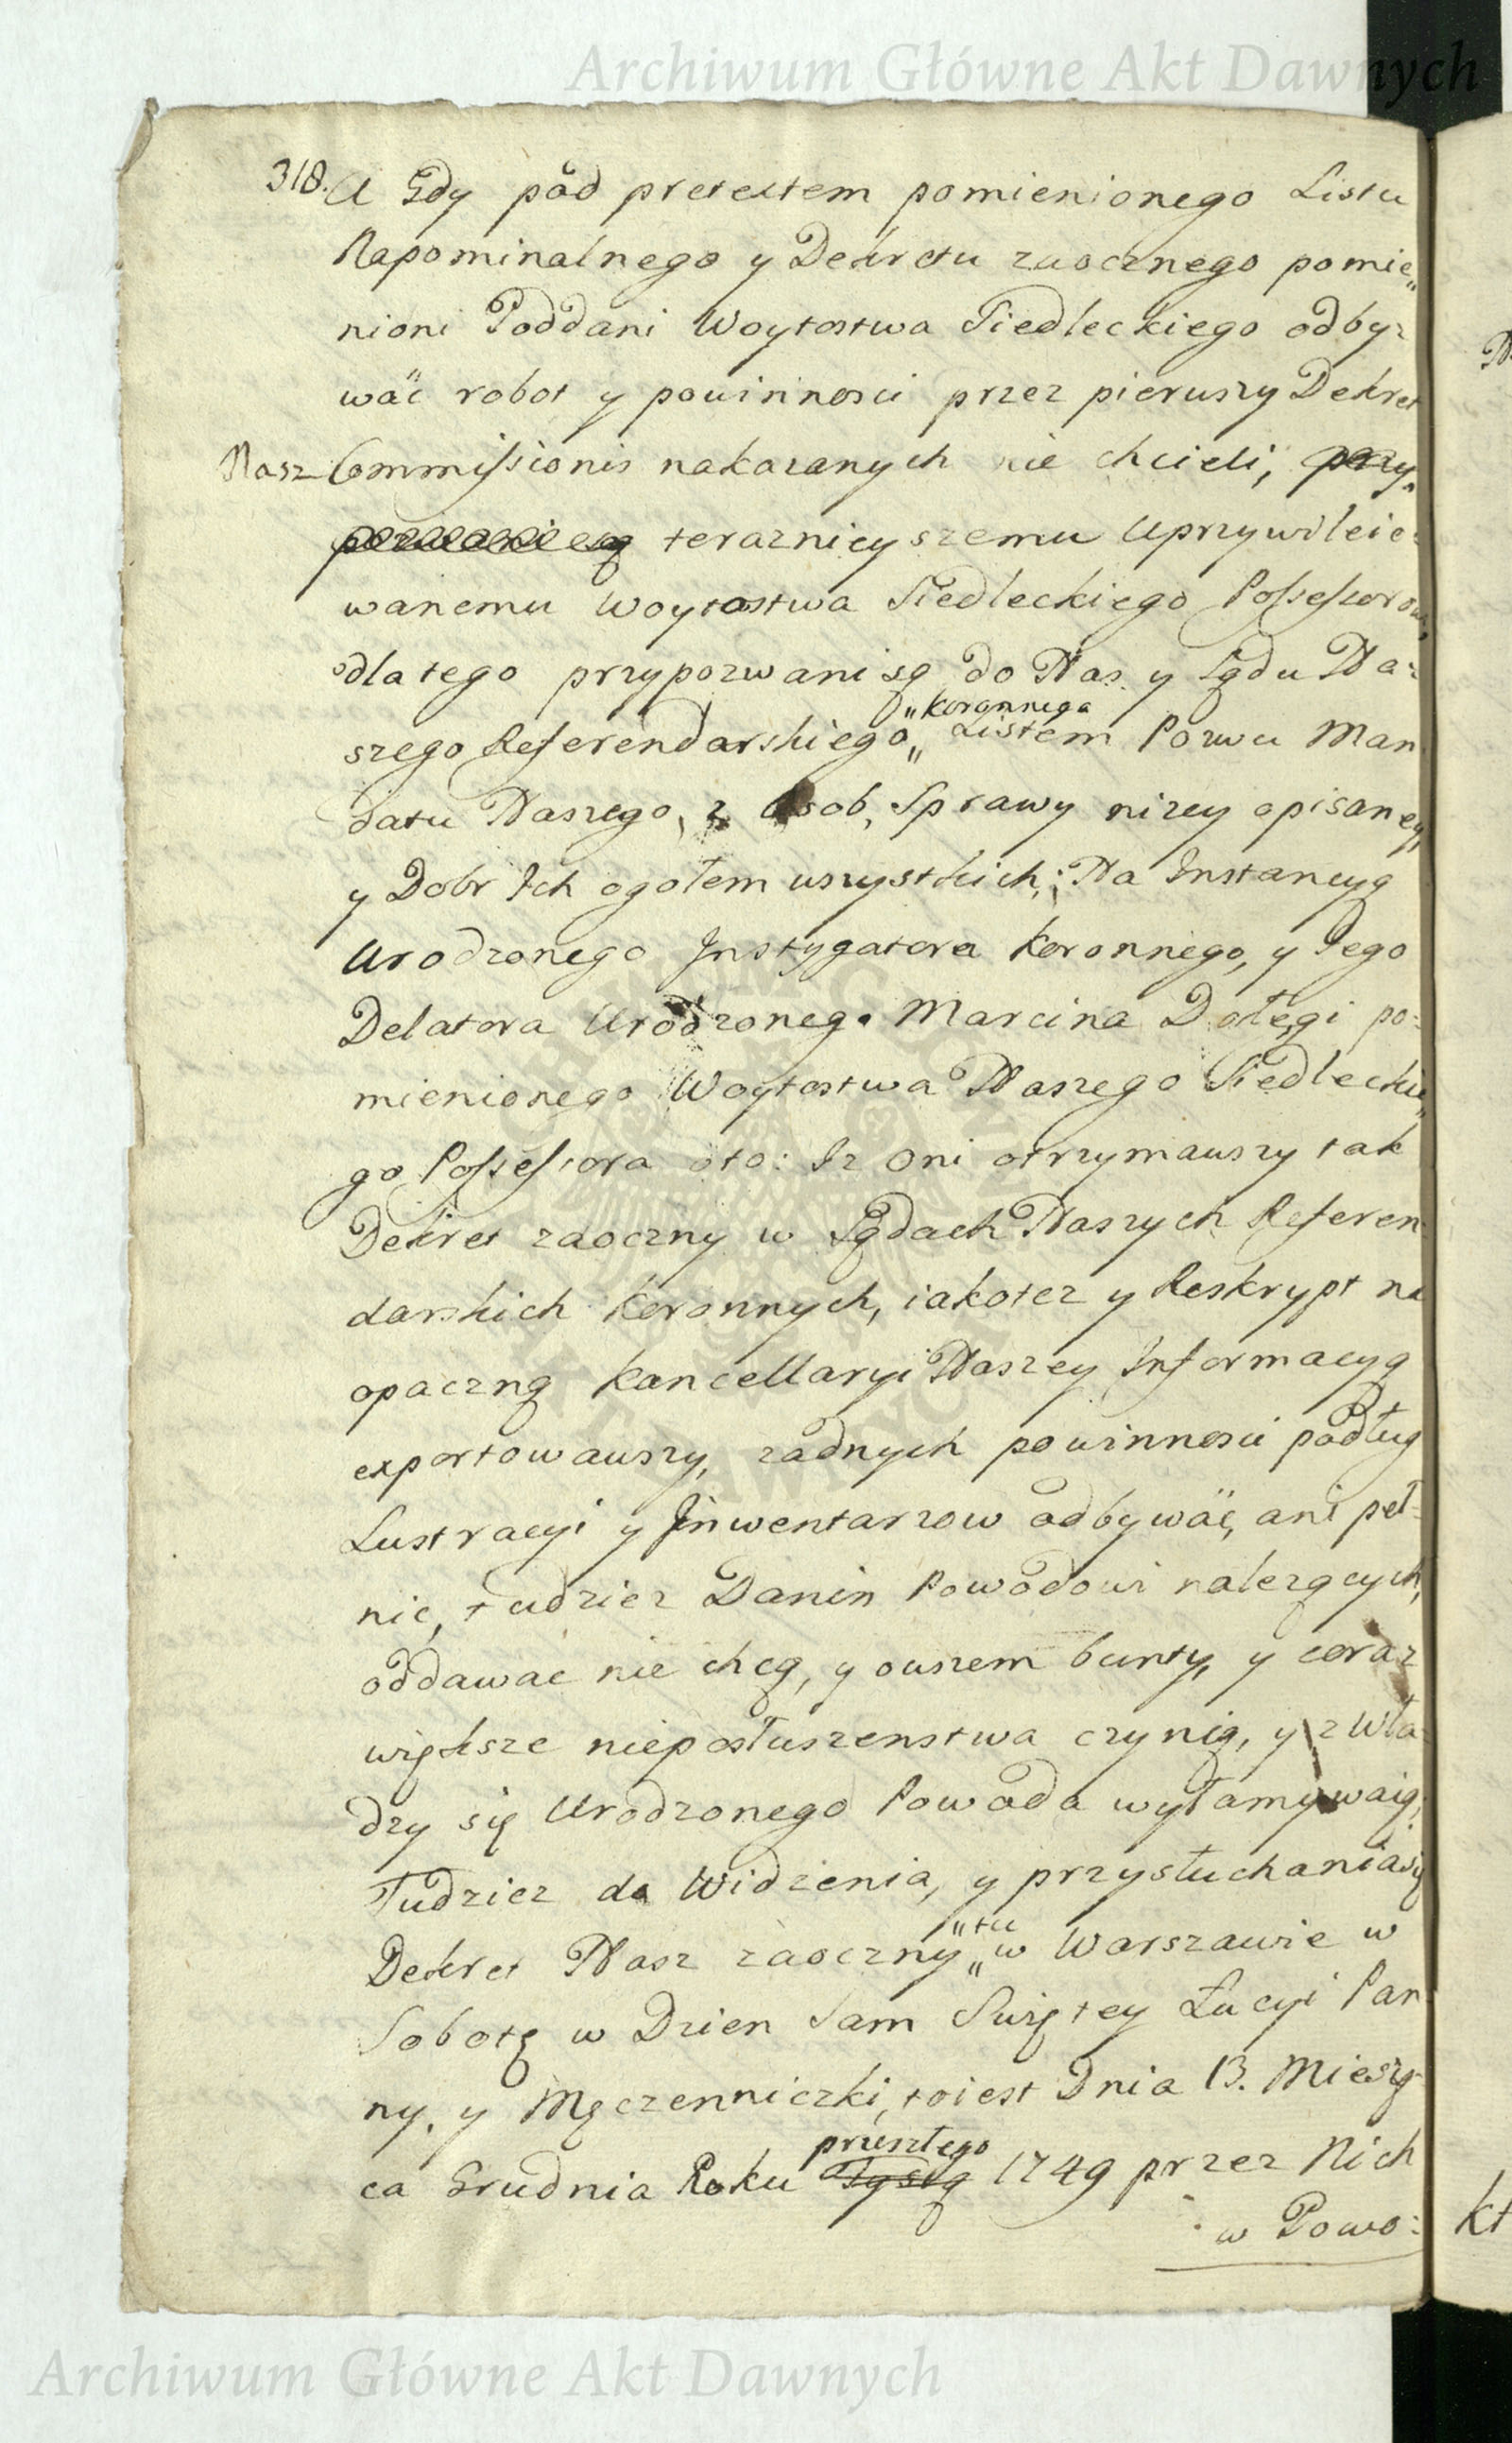 Archiwum Główne Akt Dawnych
318. A Gdy pod pretextem pomienionego Listu
Napominalnego y Dekretu zaocznego pomie„
nioni Poddani Woytostwa Siedleckiego odby-
wać robot y powinnosci przez pierwszy Dekret
Nasz Commissionis nakazanych nie chcieli, przy„
pozwani są teraznieyszemu Uprzywileio:
wanemu Woytostwa Siedleckiego Possessorowi,
dlatego przypozwani są do Nas y Sądu Na:
szego Referendarskiego „koronnego„ Listem Pozwu Man
datu Naszego, z Osob, Sprawy nizey opisaney,
y Dobr Ich ogołem wszystkich; Na Instancyą
Urodzonego Instygatora Koronnego, y Jego
Delatora Urodzonego Marcina Dołęgi po:
mienionego Woytostwa Naszego Siedleckie„
go Possessora oto: Iz Oni otrzymawszy tak
Dekret zaoczny w Sądach Naszych Referen
darskich Koronnych, iakotez y Reskrypt na
opaczną Kancellaryi Naszey Informacyą
exportowawszy, zadnych powinnosci podług
Lustracyi y Jnwentarzow odbywać, ani peł-
nic, tudziez Danin Powodowi nalezących,
oddawac nie chcą, y owszem bunty, y coraz
większe nieposłuszenstwa czynią, y z Wła:
dzy się Urodzonego Powoda wyłamywaią;
Tudziez do Widzenia, y przysłuchania się
Dekret Nasz zaoczny „tu„ w Warszawie w
Sobotę w Dzien Sam Swiętey Łucyi Pan
ny, y Męczenniczki, toiest Dnia 13. Miesią-
ca Grudnia Roku Tysią przeszłego 1749 przez Nich
w Powo:
kt
Archiwum Główne Akt Dawnych